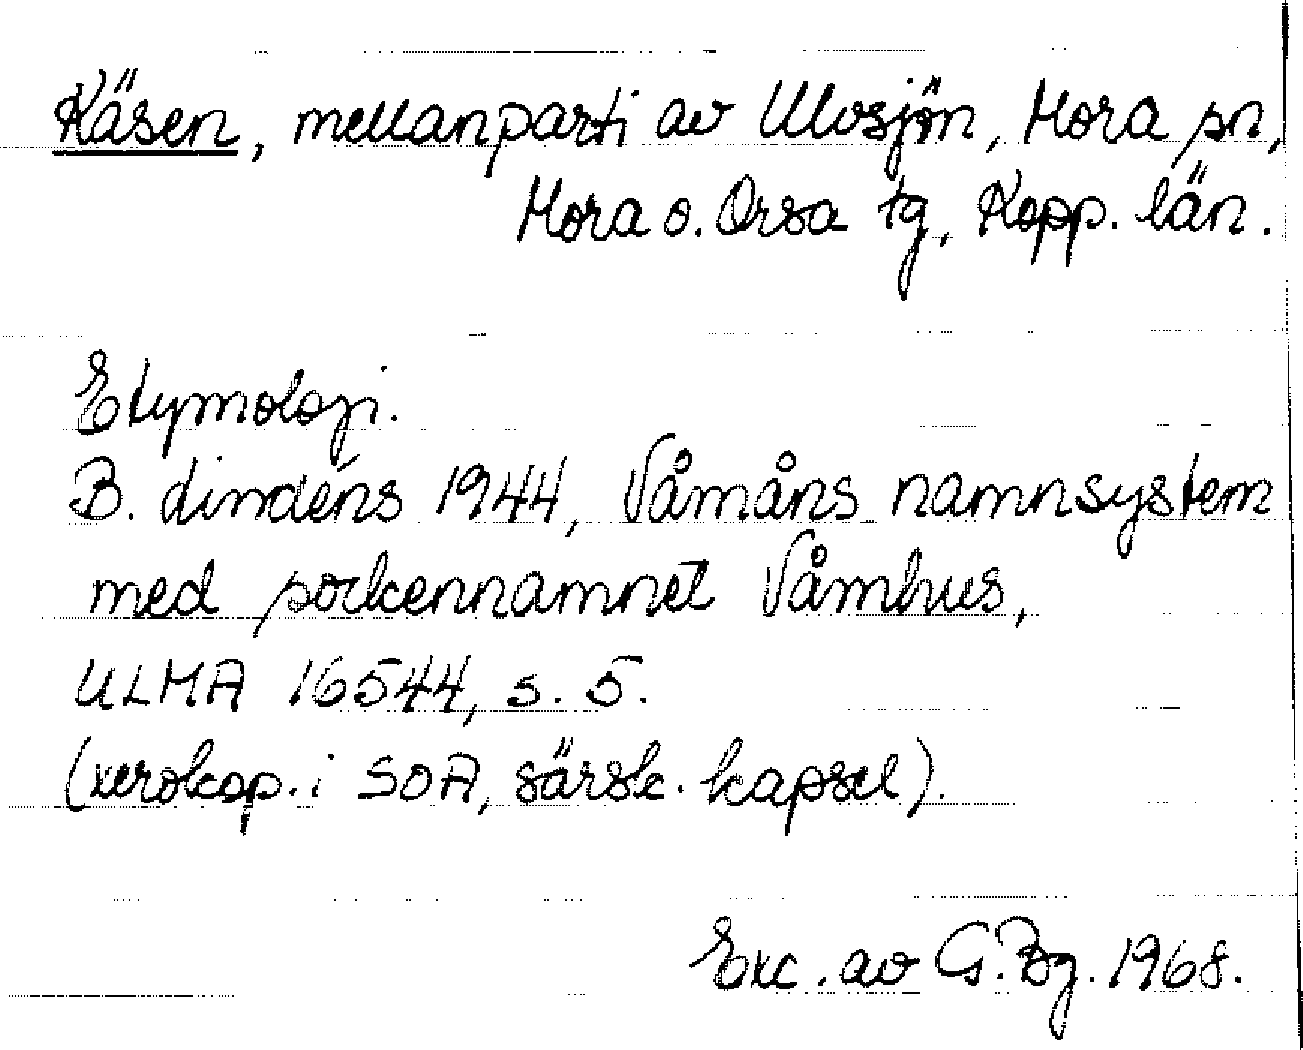 Käsen, mellanparti av Ulvsjön, Mora sn,
Mora o. Orsa tg, Kopp. län.
Etymologi.
B. Lindéns 1944, Våmåns namnsystem
med sockennamnet Våmhus,
ULMA 16544, s. 5.
(xerokop. i SOA, särsk. kapsel).
Exc. av G. Bg. 1968.